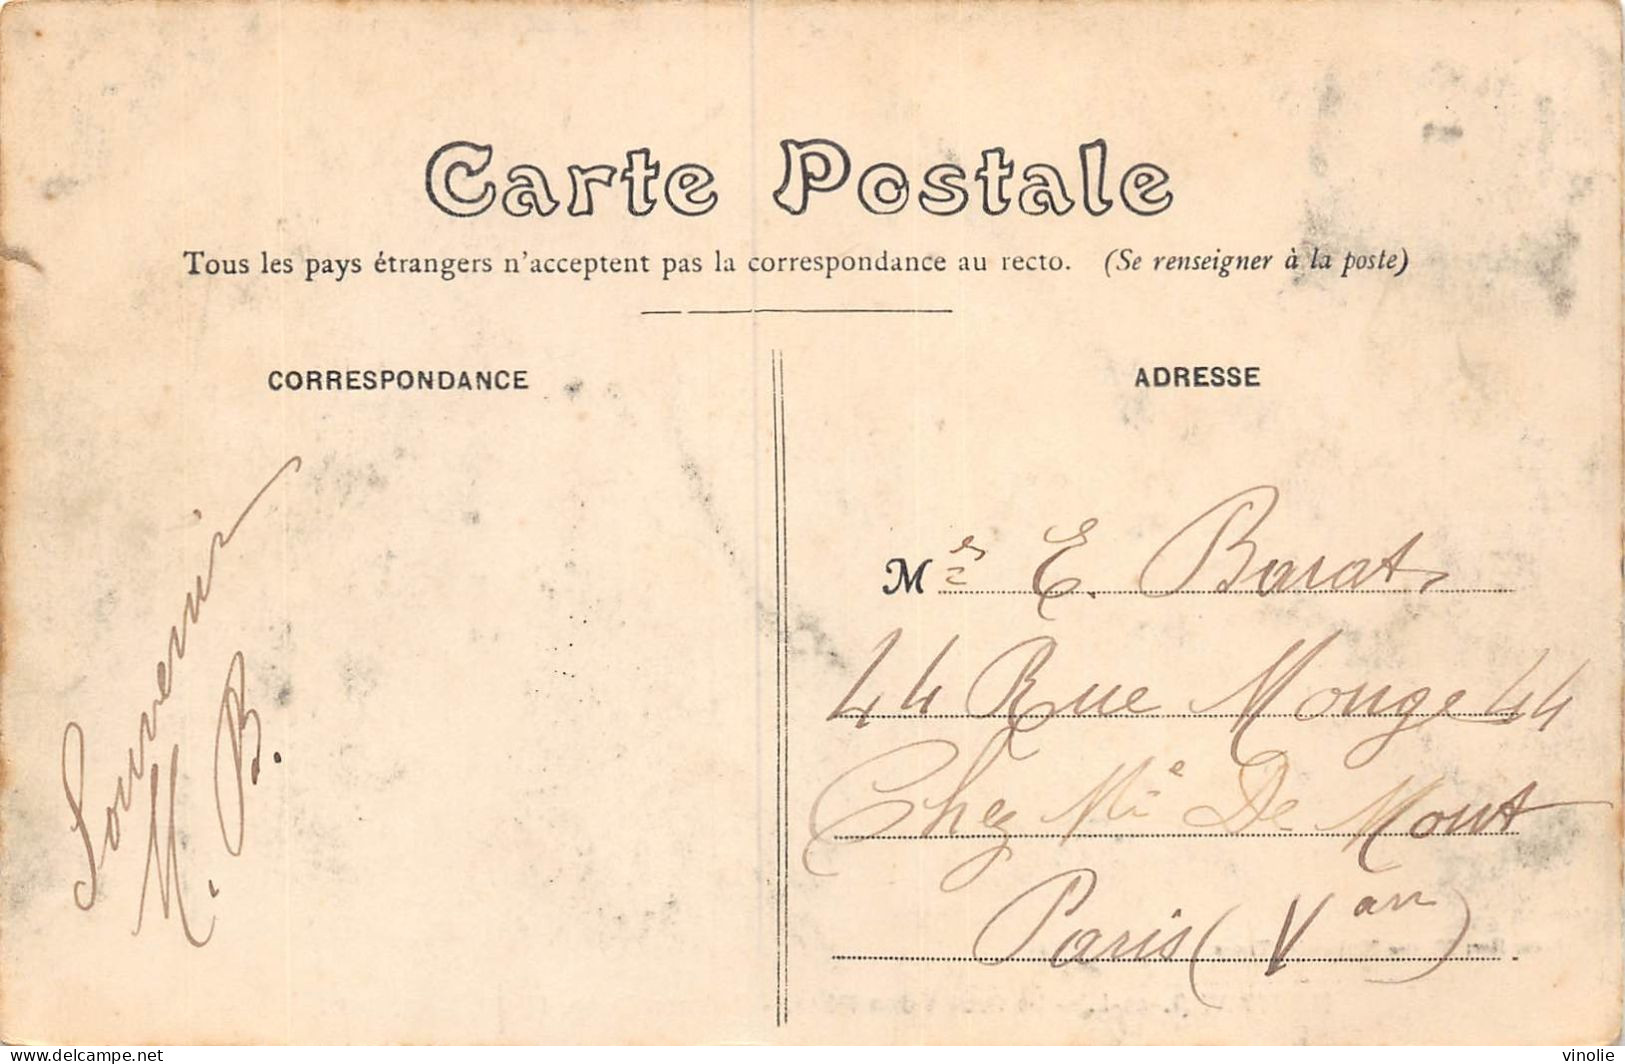 Carte Postale
Tous les pays étrangers n'acceptent pas la correspondance au recto. (Se renseigner à la poste)
CORRESPONDANCE
Souvenir
M. B.
ADRESSE
E. Barat
44 Rue Monge 44
Chez De Mont
Paris (V arr)
www.delcampe.net
vinolie